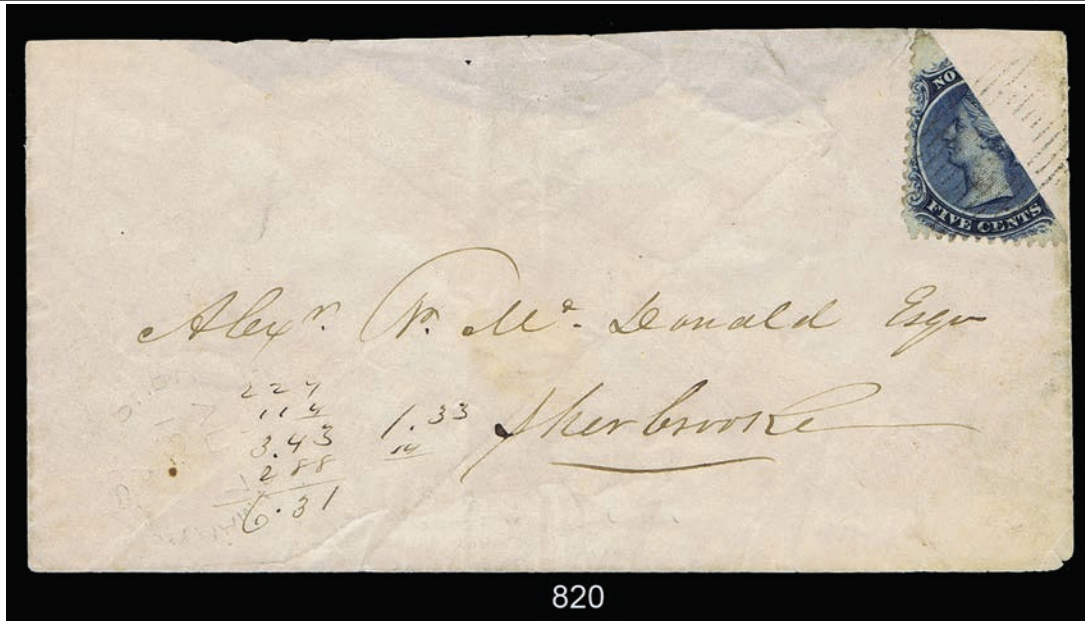 NO
FIVE CENTS
Alexr. Mc. Donald Esqr
Sherbrooke
1.33
3.43
288
6.31
820